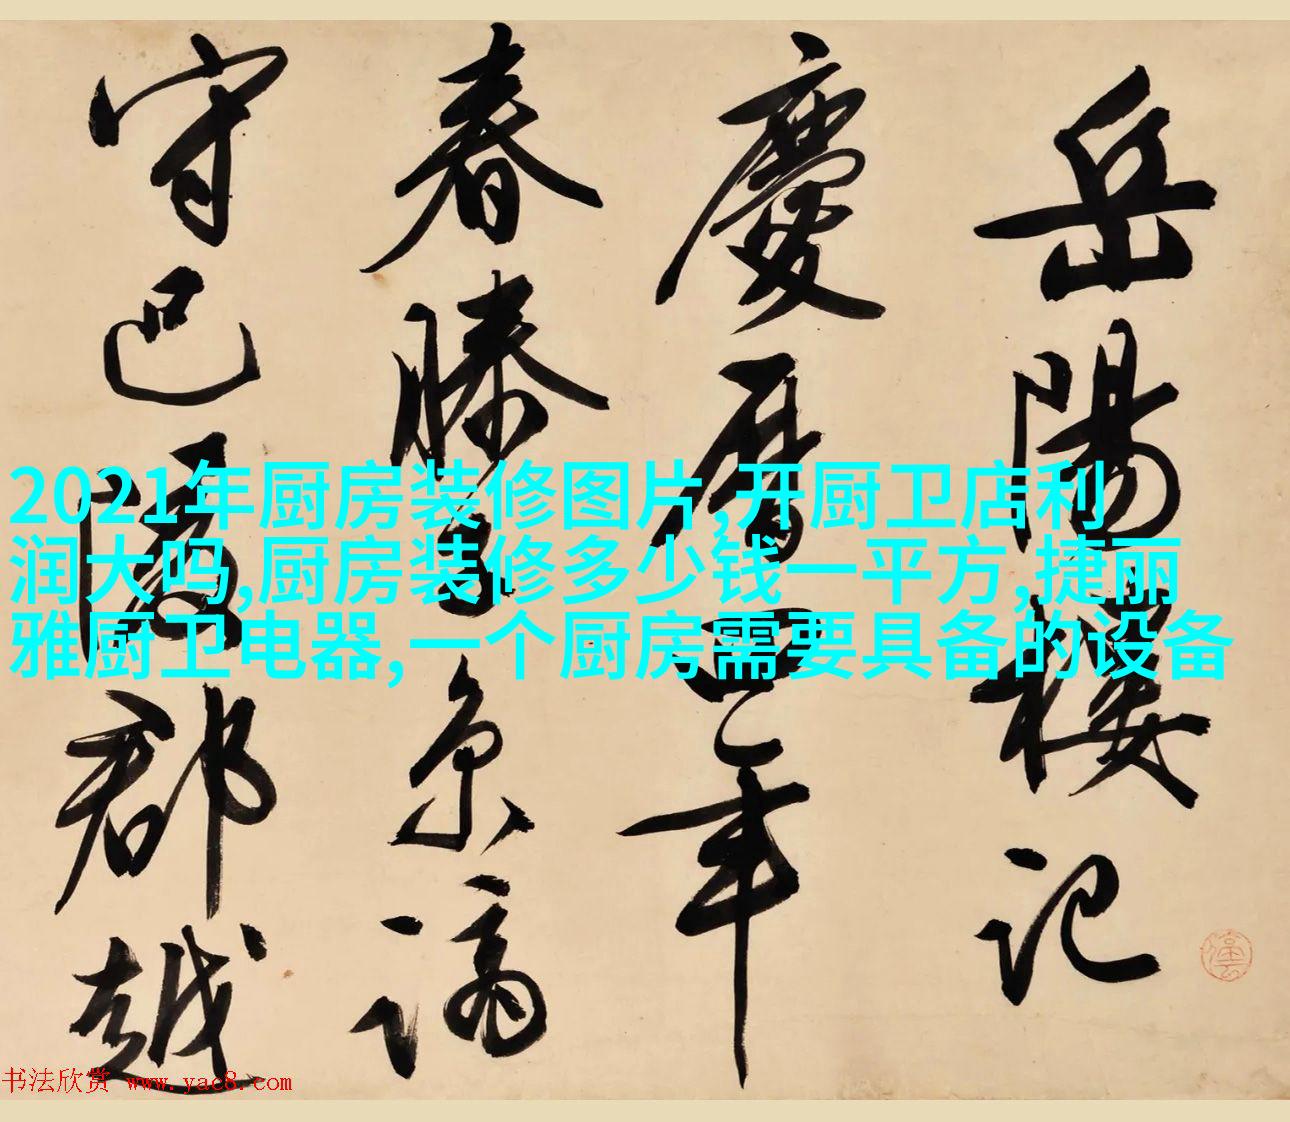 岳陽樓記
慶曆四年
春滕子京謫
守巴陵郡越
2021年厨房装修图片,开厨卫店利
润大吗,厨房装修多少钱一平方,捷丽
雅厨卫电器,一个厨房需要具备的设备
书法欣赏 www.yac8.com